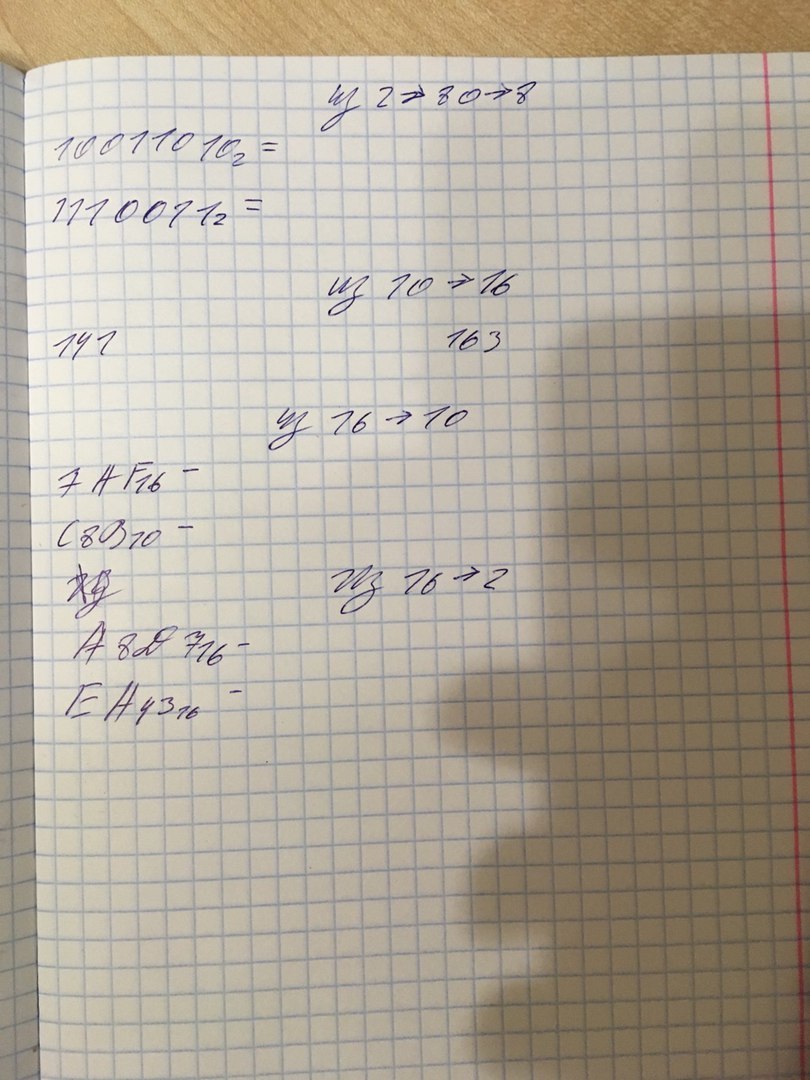 из 2→80→8
100110102=
11100112=
из 10→16
141 163
из 16→10
7AF16 -
C8B10 -
Из 16→2
A8D716-
EA4316 -